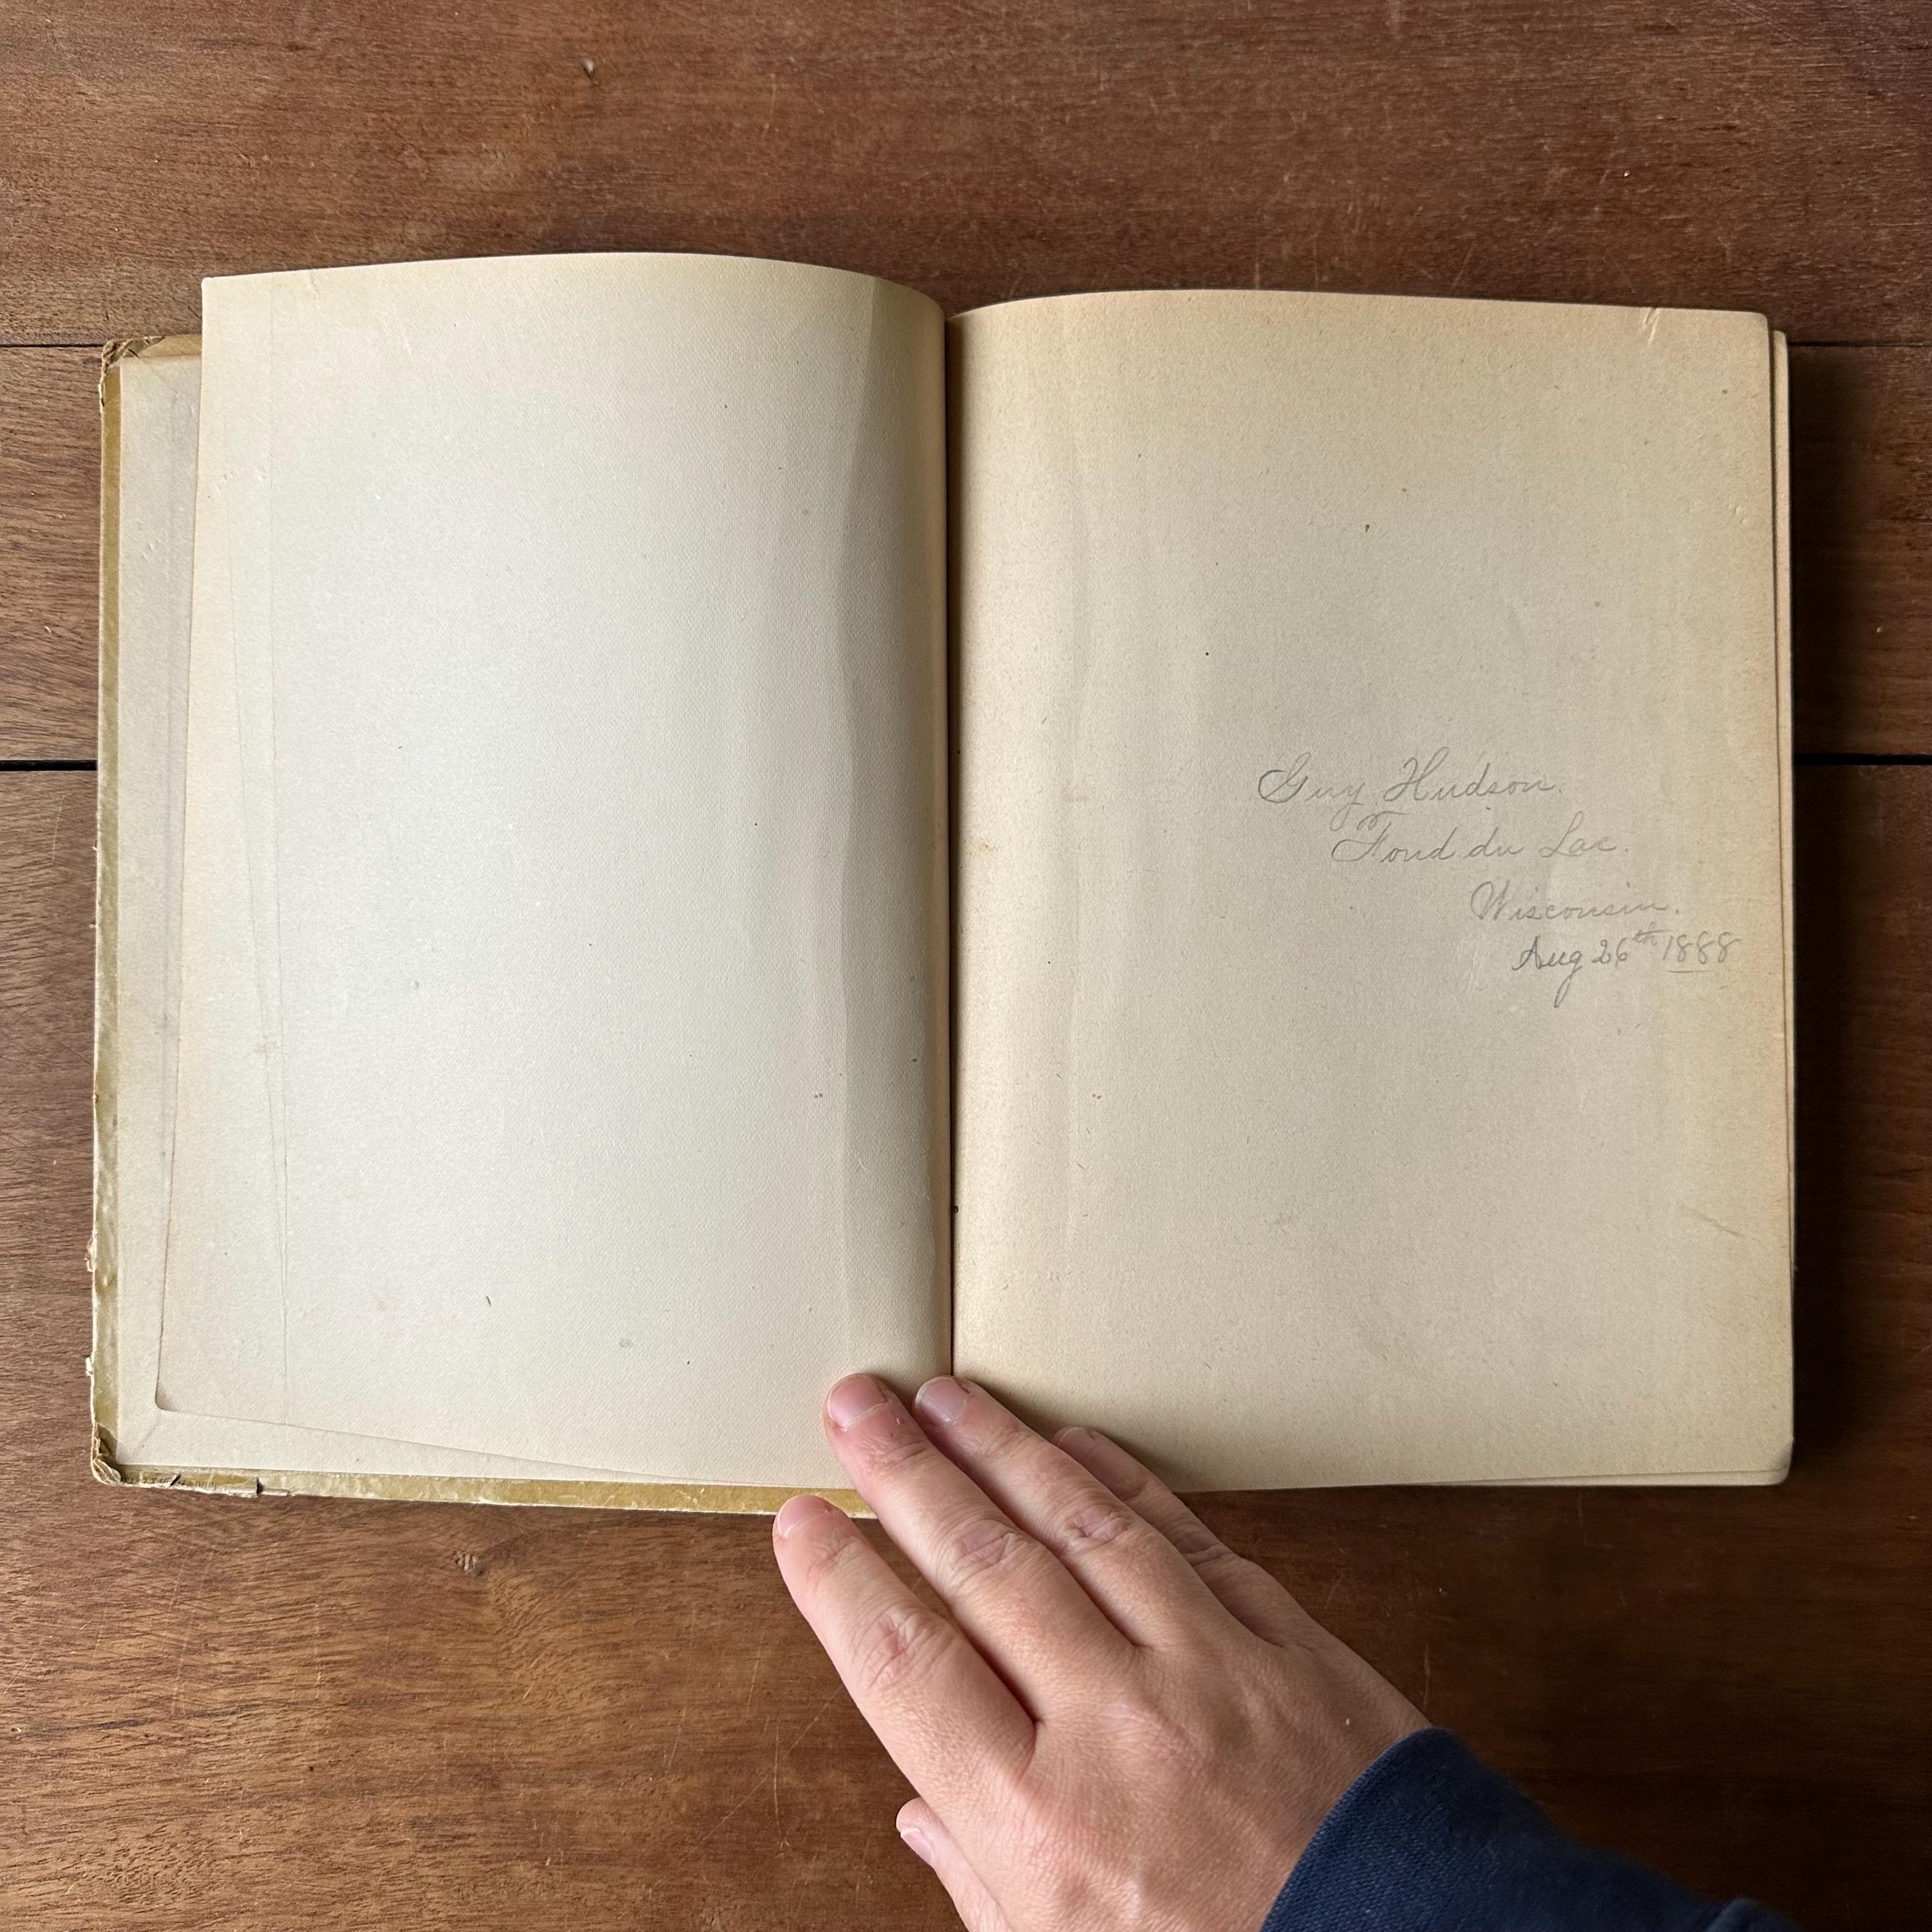 Guy Hudson.
Fond du Lac.
Wisconsin.
Aug 26th 1888